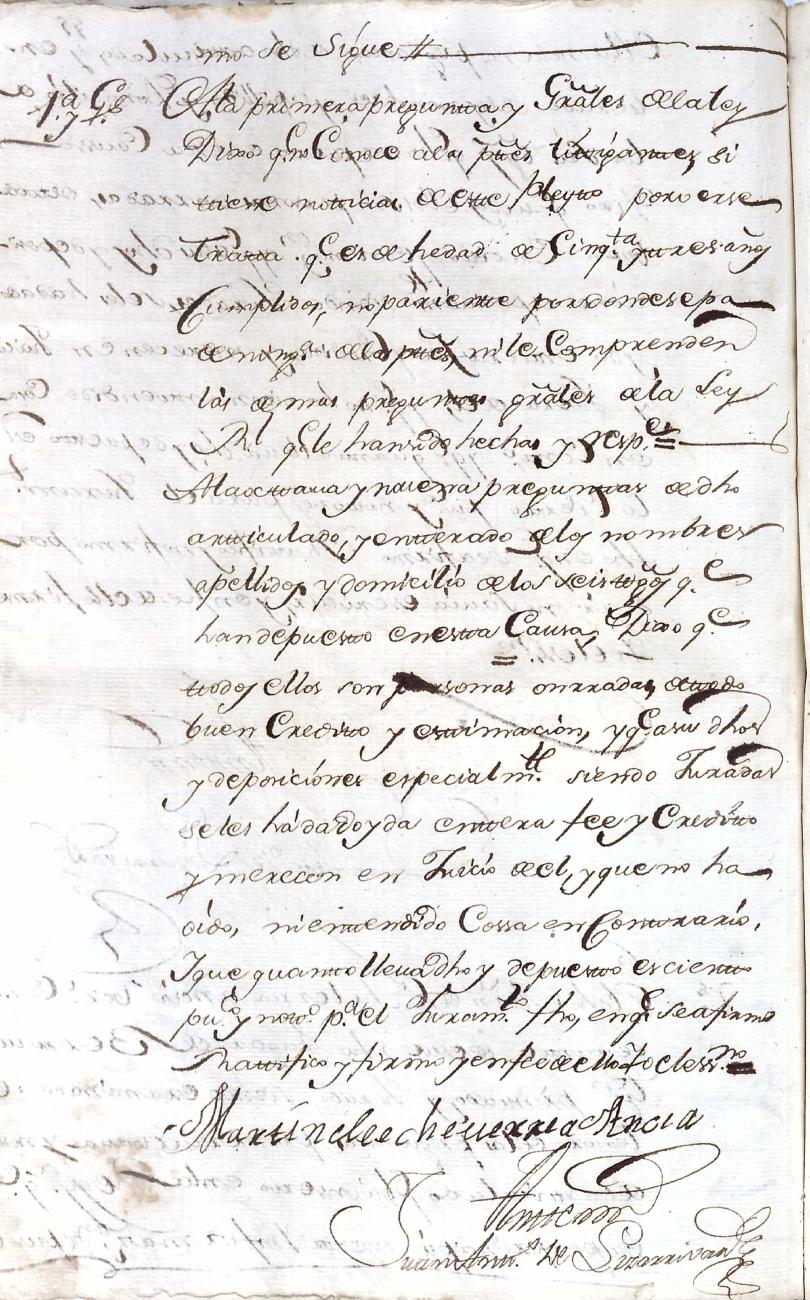 mo se sigue //
1ª y G.s A la primera pregunta y Grãles de la ley
Dixo q.e no Conoce a las p.tes litigantes si
tiene noticias de este pleyto por verse
trata. q.e es de hedad de Cinq.ta y tres años
Cumplidos, no pariente por donde sepa
de ning.a de las ptes, ni le Comprenden
las demas preguntas grãles de la Ley
q.e le han sido hechas y resp.e =
A la octava y novena preguntas de dho
articulado, y enterado de los nombres
apellidos y domicilio de los seis tgõs q.e
han depuesto en esta Causa, Dixo q.e
todos ellos son personas onrradas, de todo
buen Credito y estimacion, y q.e a sus dhos
y deposiciones especialm.te siendo Juradas
se les há dado y da entera fee y Credito
y merecen en Juicio de el, y que no ha
oido, ni entendido Cossa en Contrario,
Ique quanto lleva dho y depuesto es cierto
pu.co y noto.o p.a el Juram.to fho, en q.e se afirmo
Rattifico y firmo y en fee de ello Yo el ess.no =
Martin de echeverria Ancia
Ante mi
Juan Antt.o de Lizarrivar